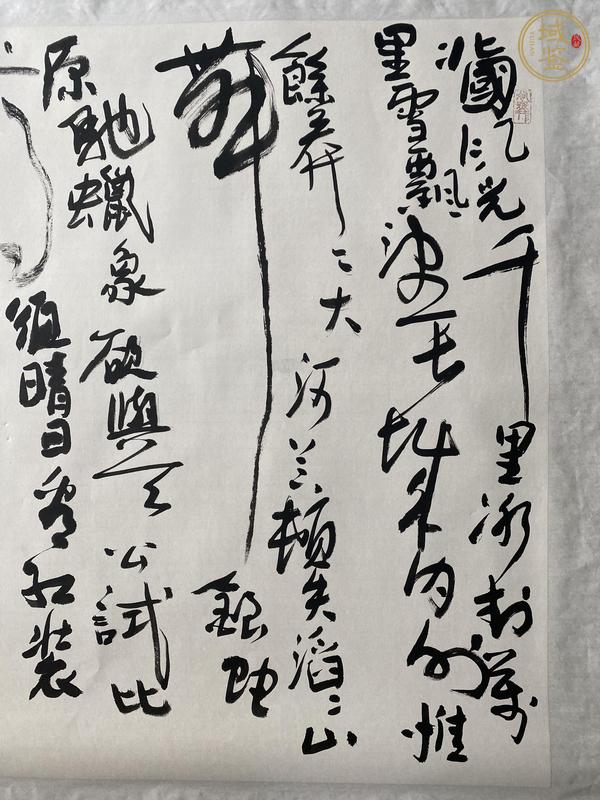 北國風光千里冰封萬
里雪飄望長城內外惟
餘莽〻大河上下頓失滔〻山
舞銀蛇
原馳蠟象欲與天公試比
高須晴日看紅裝
域鉴